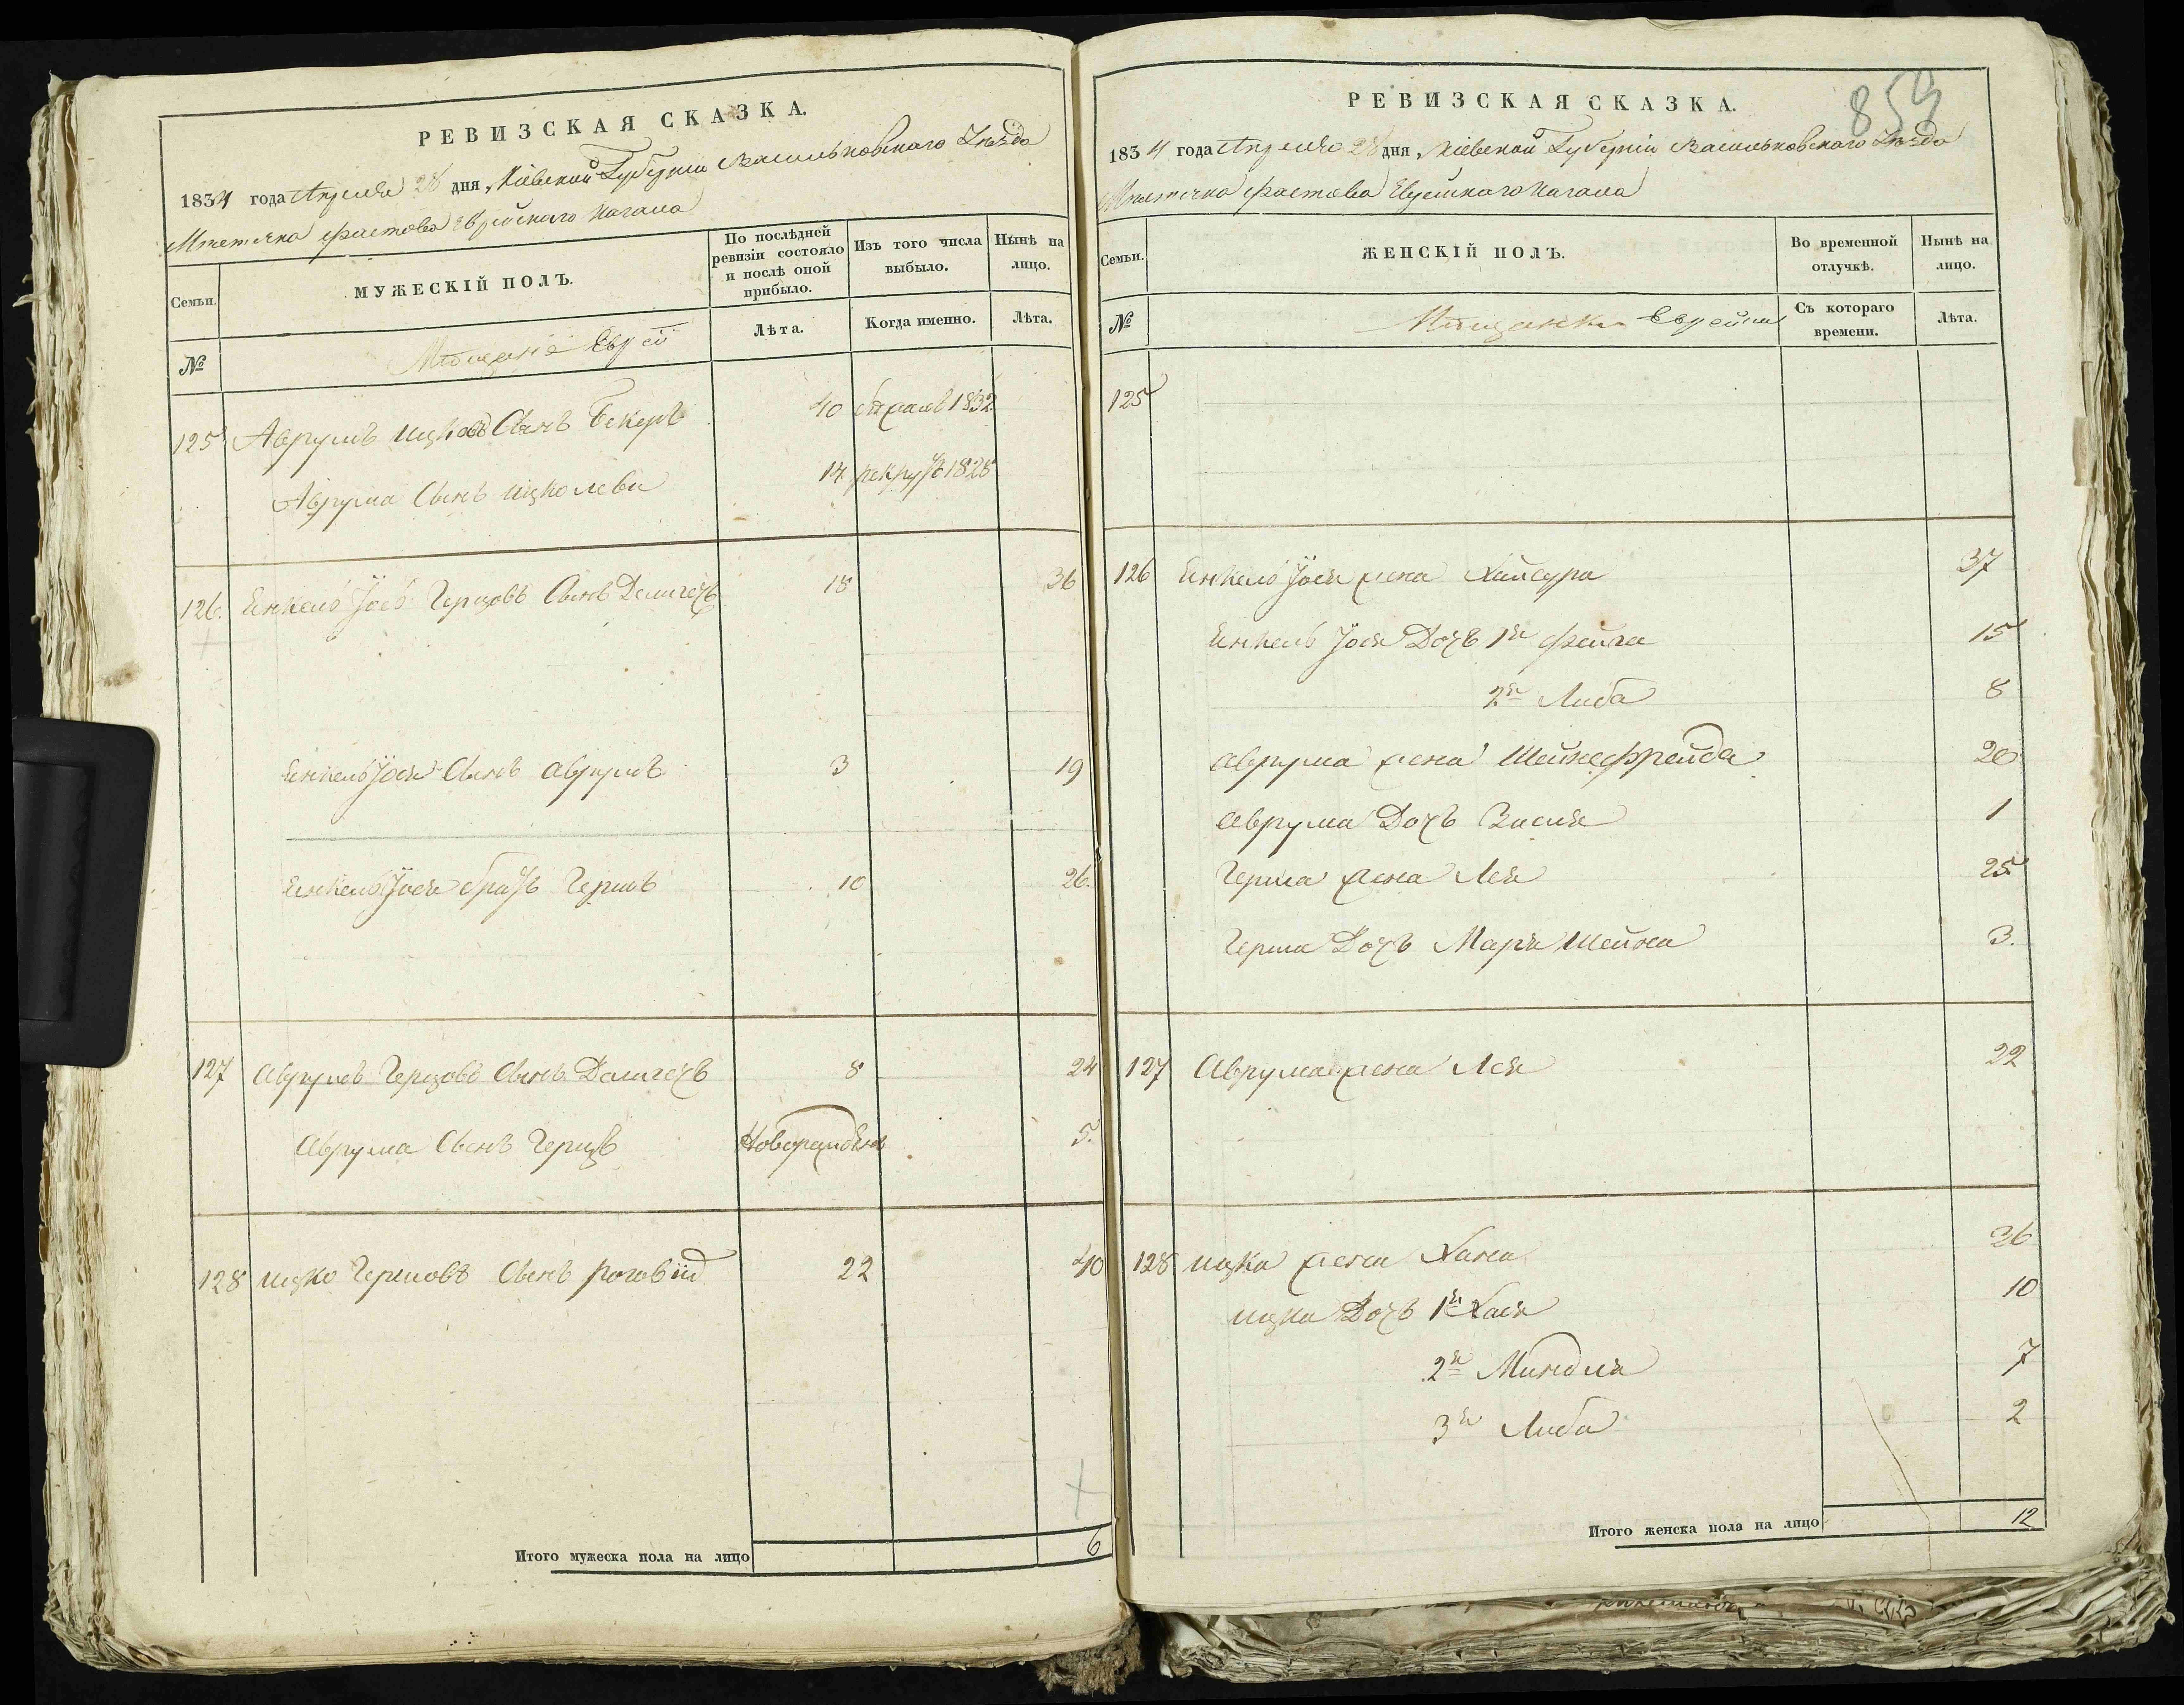 РЕВИЗСКАЯ СКАЗКА.
1834 года Апреля 28 дня, Кіевской Губерніи Васильковскаго Уѣзда
Мѣстечка Фастова Еврейскаго Кагала
Семьи.
МУЖЕСКІЙ ПОЛЪ.
По послѣдней ревизіи состояло и послѣ оной прибыло.
Изъ того числа выбыло.
Нынѣ на лицо.
№
Мѣщане Евреи
Лѣта.
Когда именно.
Лѣта.
125 Аврумъ Ицковъ Сынъ Бекеръ 40 1832
Аврума Сынъ Ицко леви 14 рекрутъ 1828
126. Енкель Іосъ Герцовъ Сынъ 18 36
Енкель Іося Сынъ Аврумъ 3 19
Енкель Іося братъ Гершъ 10 26.
127 Аврумъ Герцовъ Сынъ 8 24
Аврума Сынъ Герцъ Новорожденъ 5.
128 Ицко Гершовъ Сынъ 22 40
Итого мужеска пола на лицо 6
859
РЕВИЗСКАЯ СКАЗКА.
1834 года Апреля 28 дня, Кіевской Губерніи Васильковскаго Уѣзда
Мѣстечка Фастова Еврейскаго Кагала
Семьи.
ЖЕНСКІЙ ПОЛЪ.
Во временной отлучкѣ.
Нынѣ на лицо.
№
Мѣщанки Еврейки
Съ котораго времени.
Лѣта.
125
126 Енкель Іося жена Хайсура 37
Енкель Іося Дочь 1я Фейга 15
2я Либа 8
Аврума жена Шейнефрейда 20
Аврума Дочь 1
Герша жена Лея 25
Герша Дочь Маря Шейна 3.
127 Аврума жена Лея 22
128 Ицка жена Хана 36
Ицка Дочь 1я Хася 10
2я Миндля 7
3я Либа 2
Итого женска пола на лицо 12